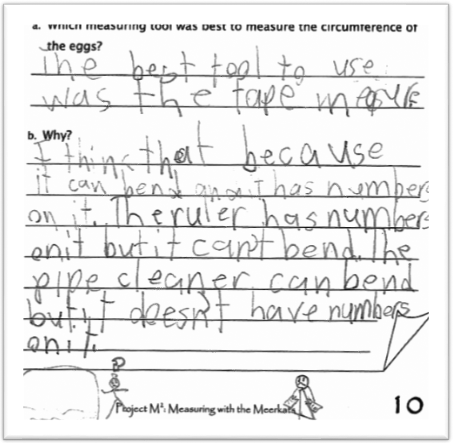 a. Which measuring tool was best to measure the circumference of
the eggs?
The best tool to use
was the tape measure
b. Why?
I think that because
it can bend and it has numbers
on it. The ruler has numbers
on it but it can't bend. The
pipe cleaner can bend
but it doesn't have numbers
on it.
Project M²: Measuring with the Meerkats
10